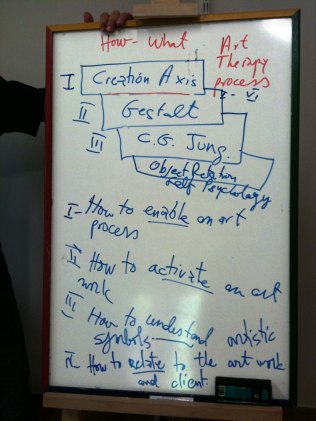 How - What Art
Therapy
process
I Creation Axis
I - VI
II Gestalt
III C.G. Jung.
Object Relation
Self Psychology
I - How to enable an art
process
II How to activate an art
work
III How to understand artistic
symbols
IV - How to relate to the art work
and client.